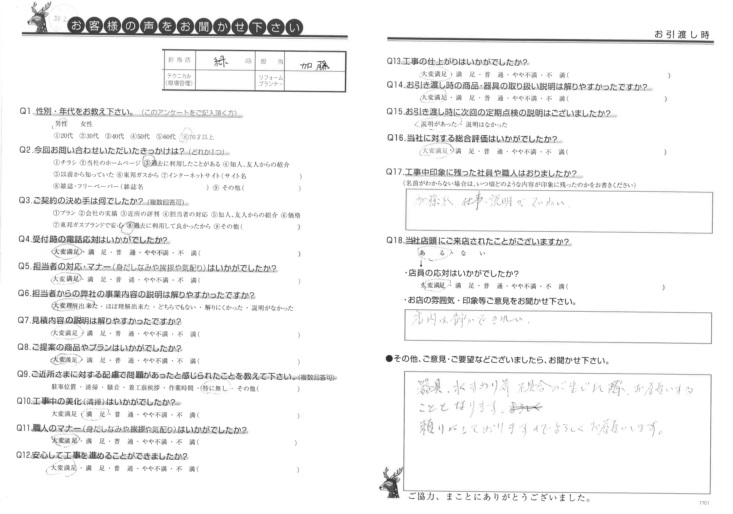 お客様の声をお聞かせ下さい
担当店 緑 店 担当 加藤
テクニカル(現場管理) リフォームプランナー
Q1.性別・年代をお教え下さい。(このアンケートをご記入頂く方)
男性 女性
①20代 ②30代 ③40代 ④50代 ⑤60代 ⑥70才以上
Q2.今回お問い合わせいただいたきっかけは?(どれか1つ)
①チラシ ②当社のホームページ ③過去に利用したことがある ④知人、友人からの紹介
⑤以前から知っていた ⑥東邦ガスから ⑦インターネットサイト(サイト名 )
⑧雑誌・フリーペーパー(雑誌名 ) ⑨その他( )
Q3.ご契約の決め手は何でしたか?(複数回答可)
①プラン ②会社の実績 ③近所の評判 ④担当者の対応 ⑤知人、友人からの紹介 ⑥価格
⑦東邦ガスブランドで安心 ⑧過去に利用して良かったから ⑨その他( )
Q4.受付時の電話応対はいかがでしたか?
大変満足・満 足・普 通・やや不満・不 満( )
Q5.担当者の対応・マナー(身だしなみや挨拶や気配り)はいかがでしたか?
大変満足・満 足・普 通・やや不満・不 満( )
Q6.担当者からの弊社の事業内容の説明は解りやすかったですか?
大変理解出来た・ほぼ理解出来た・どちらでもない・解りにくかった・説明がなかった
Q7.見積内容の説明は解りやすかったですか?
大変満足・満 足・普 通・やや不満・不 満( )
Q8.ご提案の商品やプランはいかがでしたか?
大変満足・満 足・普 通・やや不満・不 満( )
Q9.ご近所さまに対する配慮で問題があったと感じられたことを教えて下さい。(複数回答可)
駐車位置・清掃・騒音・着工前挨拶・作業時間・特に無し・その他( )
Q10.工事中の美化(清掃)はいかがでしたか?
大変満足・満 足・普 通・やや不満・不 満( )
Q11.職人のマナー(身だしなみや挨拶や気配り)はいかがでしたか?
大変満足・満 足・普 通・やや不満・不 満( )
Q12.安心して工事を進めることができましたか?
大変満足・満 足・普 通・やや不満・不 満( )
お引渡し時
Q13.工事の仕上がりはいかがでしたか?
大変満足・満 足・普 通・やや不満・不 満( )
Q14.お引き渡し時の商品・器具の取り扱い説明は解りやすかったですか?
大変満足・満 足・普 通・やや不満・不 満( )
Q15.お引き渡し時に次回の定期点検の説明はございましたか?
説明があった・説明はなかった
Q16.当社に対する総合評価はいかがでしたか?
大変満足・満 足・普 通・やや不満・不 満( )
Q17.工事中印象に残った社員や職人はおりましたか?
(名前がわからない場合は、いつ頃どのような内容が印象に残ったのかをお書きください)
加藤氏 仕事、説明が
Q18.当社店頭にご来店されたことがございますか?
ある・ない
・店員の応対はいかがでしたか?
大変満足・満 足・普 通・やや不満・不 満( )
・お店の雰囲気・印象等ご意見をお聞かせ下さい。
店内は静かできれい。
●その他、ご意見・ご要望などございましたら、お聞かせ下さい。
器具、水まわり等 不具合が生じた際、お願いする
こととなります。
頼りにしておりますのでよろしくお願いします。
ご協力、まことにありがとうございました。
1701